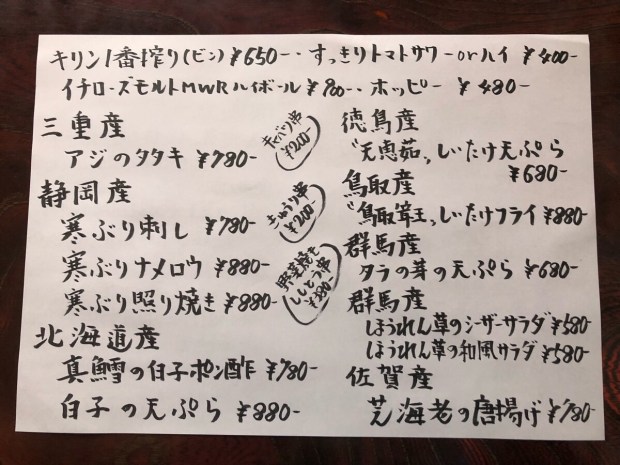 キリン1番搾り(ビン)¥650-・すっきりトマトサワーorハイ ¥400-
イチローズモルトMWRハイボール¥900-・ホッピー ¥480-
三重産
アジのタタキ ¥780-
静岡産
寒ぶり刺し ¥780-
寒ぶりナメロウ ¥880-
寒ぶり照り焼き ¥880-
北海道産
真鱈の白子ポン酢 ¥780-
白子の天ぷら ¥880-
キャベツ串
¥200-
きゅうり串
¥200-
野菜焼も
ししとう串
¥380-
徳島産
"天恵茹"しいたけ天ぷら
¥680-
鳥取産
"鳥取茸王"しいたけフライ ¥880-
群馬産
タラの芽の天ぷら ¥680-
群馬産
ほうれん草のシーザーサラダ ¥580-
ほうれん草の和風サラダ ¥580-
佐賀産
芝海老の唐揚げ ¥780-